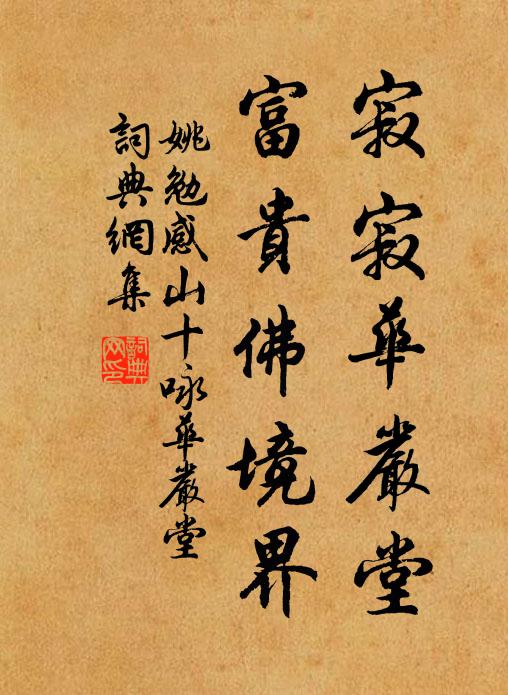 寂寂華嚴堂
富貴佛境界
姚勉感山十咏華嚴堂
詞典網集
詞典網印